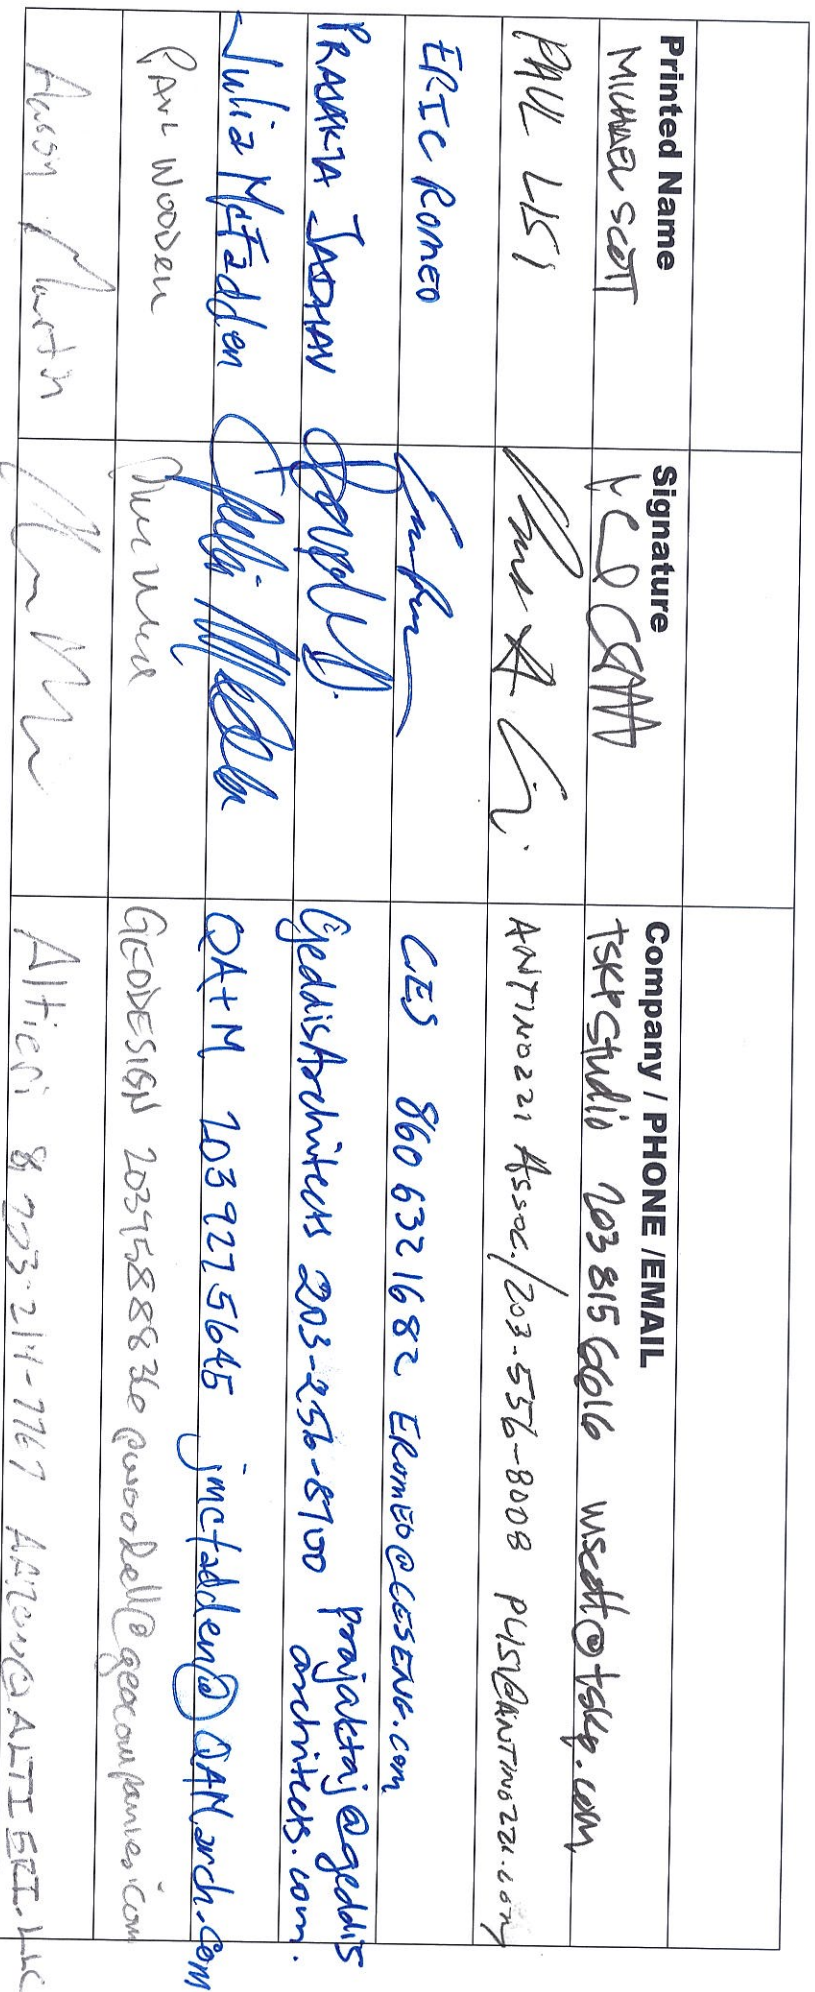 Printed Name Signature Company / PHONE /EMAIL
MICHAEL SCOTT TSKPStudio 203 815 6616 mscott@tskp.com
PAUL LISI ANTINOZZI Assoc./203-556-8008 PLISI@ANTINOZZI.com
ERIC ROMEO CES 860 632 1682 EROMEO@CESENG.com
PRAJAKTA JADHAV GeddisArchitects 203-256-8700 prajaktaj@geddis
architects.com.
Julia McFadden QA+M 203 927 5645 jmcfadden@QAMarch.com
PAUL WOODELL GEODESIGN 2037588836 pwoodell@geocompanies.com
Aaron Martin Altieri 203-214-7767